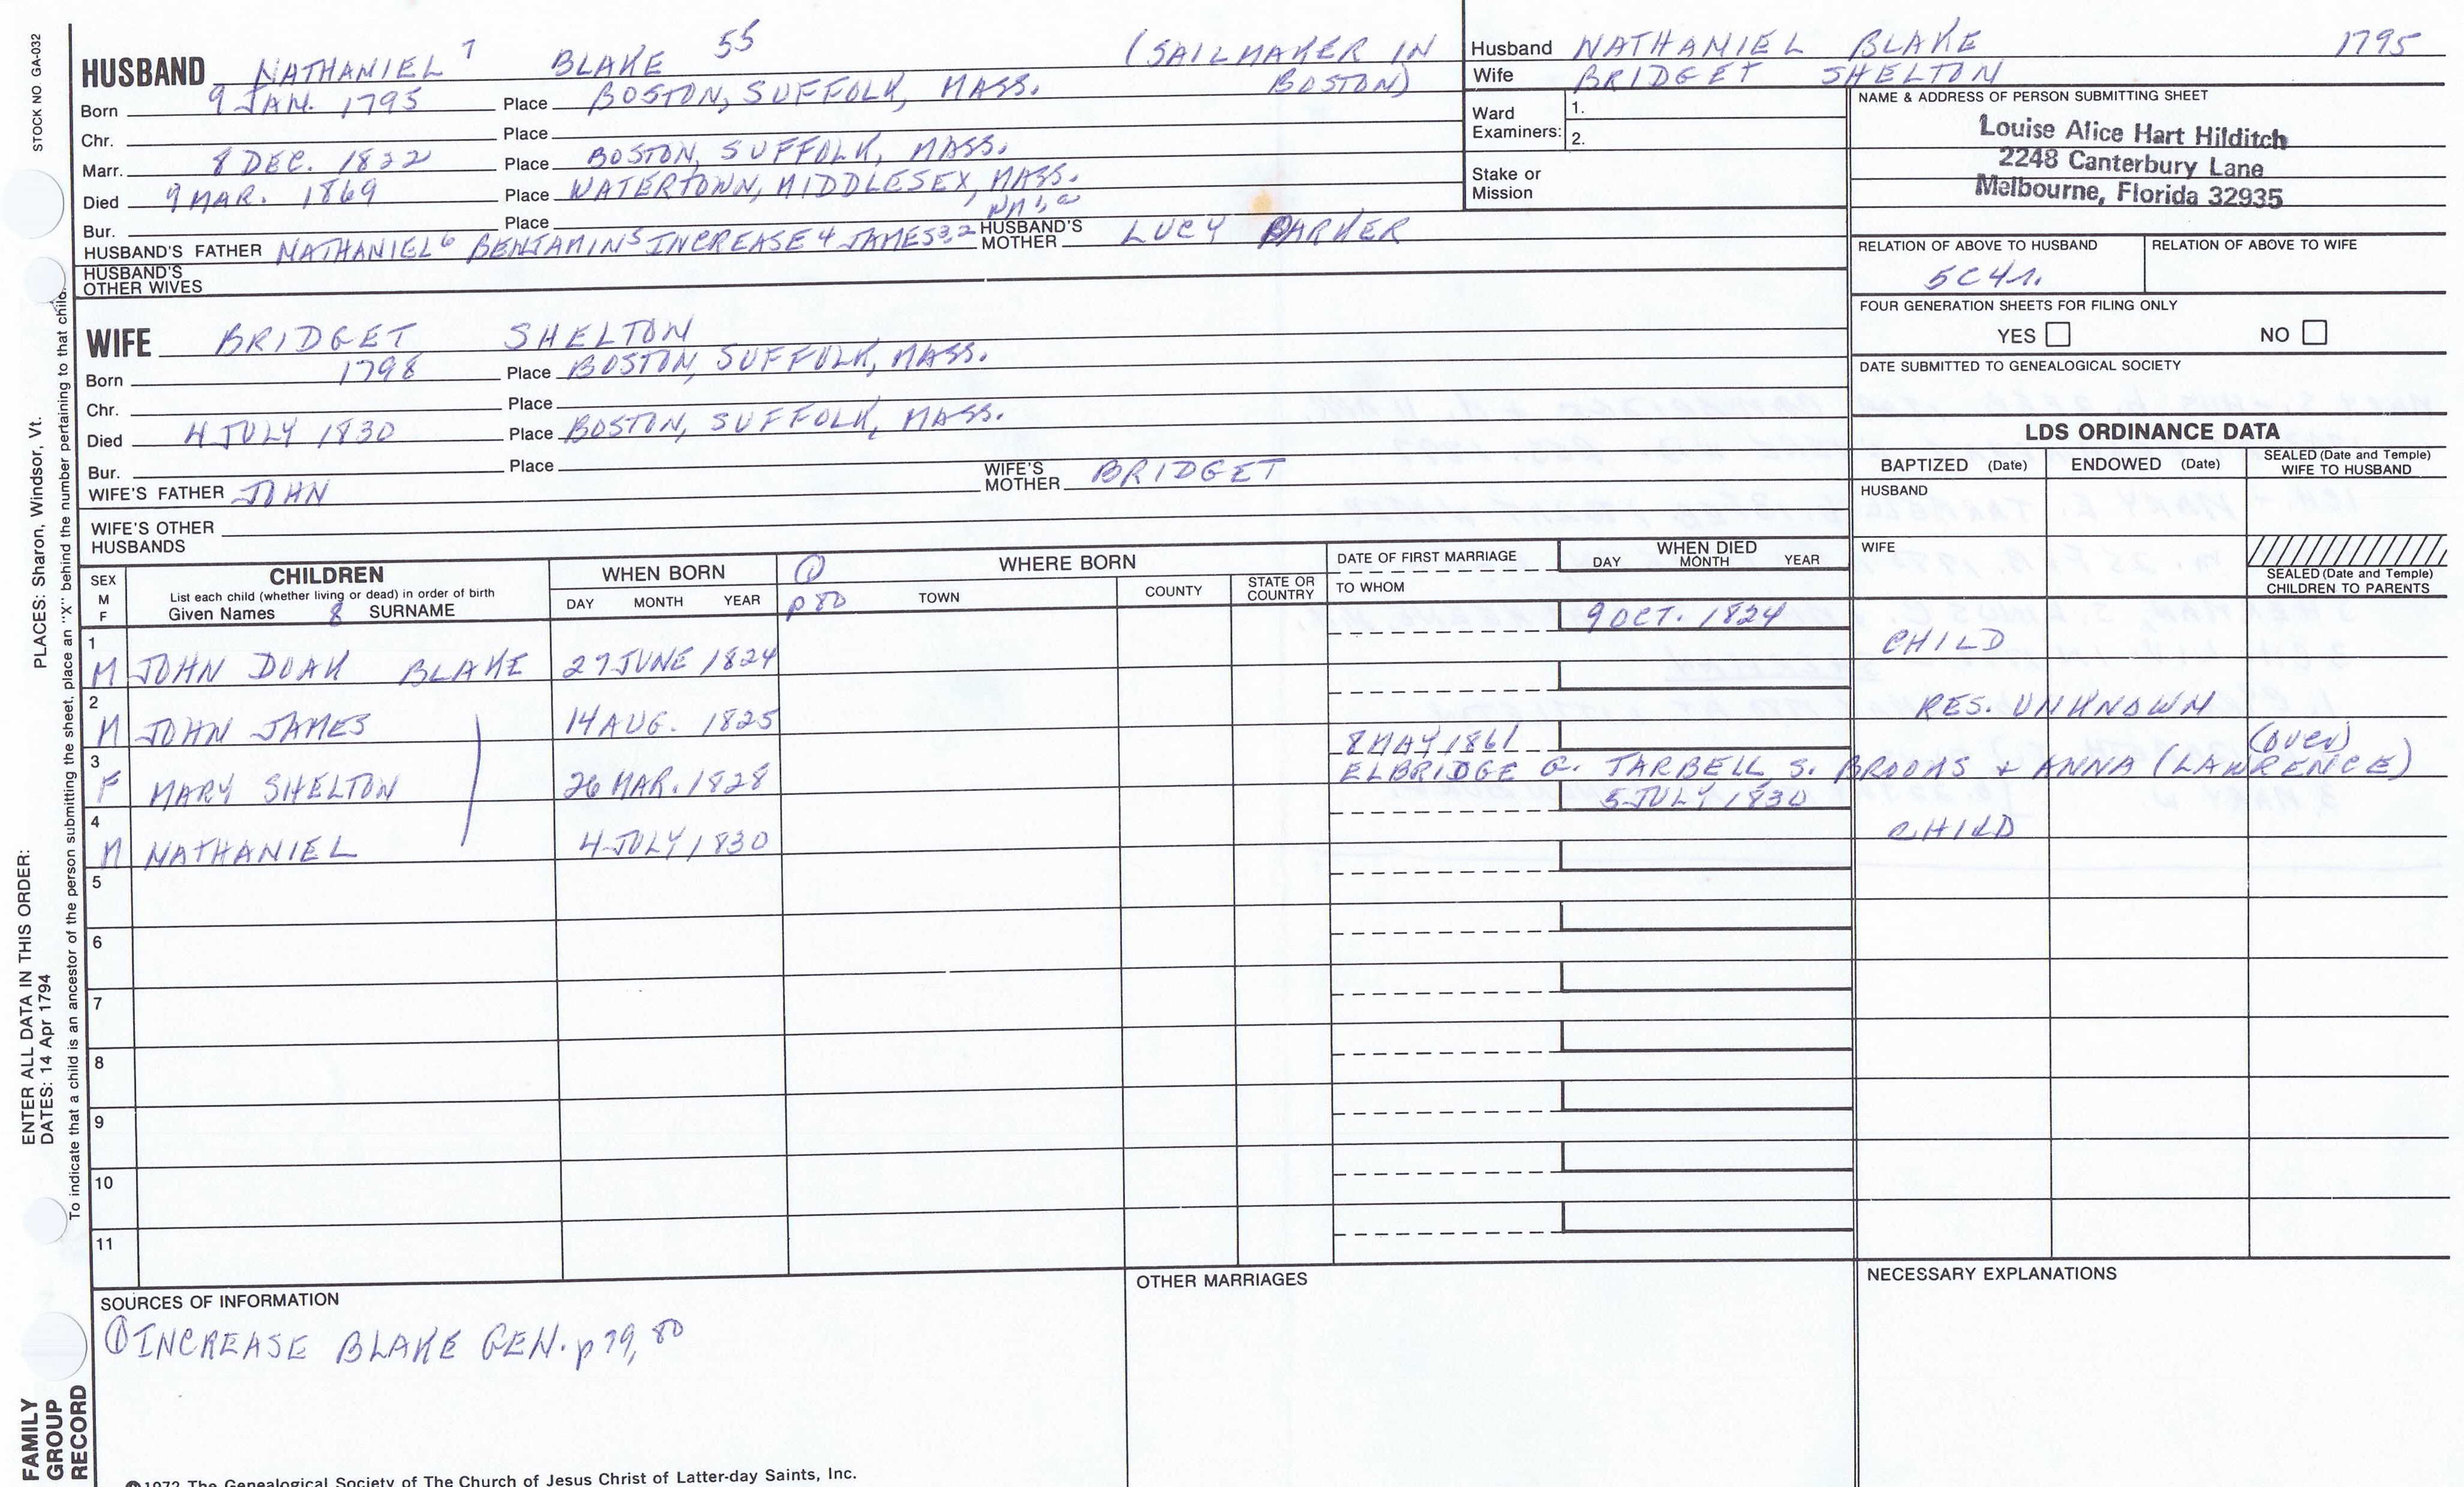 STOCK NO. GA-032
PLACES: Sharon, Windsor, Vt.
ENTER ALL DATA IN THIS ORDER:
DATES: 14 Apr 1794
To indicate that a child is an ancestor of the person submitting the sheet, place an "X" behind the number pertaining to that child.
FAMILY GROUP RECORD
HUSBAND NATHANIEL 7 BLAKE 55 (SAILMAKER IN BOSTON)
Born 9 JAN. 1795 Place BOSTON, SUFFOLK, MASS.
Chr. Place
Marr. 8 DEC. 1822 Place BOSTON, SUFFOLK, MASS.
Died 9 MAR. 1869 Place WATERTOWN, MIDDLESEX, MASS.
Bur. Place
HUSBAND'S FATHER NATHANIEL6 BENJAMIN5 INCREASE4 JAMES3,2 HUSBAND'S MOTHER LUCY BARKER
HUSBAND'S OTHER WIVES
WIFE BRIDGET SHELTON
Born 1798 Place BOSTON, SUFFOLK, MASS.
Chr. Place
Died 4 JULY 1830 Place BOSTON, SUFFOLK, MASS.
Bur. Place
WIFE'S FATHER JOHN WIFE'S MOTHER BRIDGET
WIFE'S OTHER HUSBANDS
Husband NATHANIEL BLAKE 1795
Wife BRIDGET SHELTON
Ward Examiners: 1.
2.
Stake or Mission
NAME & ADDRESS OF PERSON SUBMITTING SHEET
Louise Alice Hart Hilditch
2248 Canterbury Lane
Melbourne, Florida 32935
RELATION OF ABOVE TO HUSBAND RELATION OF ABOVE TO WIFE
5C4r.
FOUR GENERATION SHEETS FOR FILING ONLY
YES NO
DATE SUBMITTED TO GENEALOGICAL SOCIETY
LDS ORDINANCE DATA
BAPTIZED (Date) ENDOWED (Date) SEALED (Date and Temple) WIFE TO HUSBAND
HUSBAND
WIFE
SEALED (Date and Temple) CHILDREN TO PARENTS
SEX M F CHILDREN WHEN BORN ① WHERE BORN DATE OF FIRST MARRIAGE WHEN DIED
List each child (whether living or dead) in order of birth
Given Names 8 SURNAME DAY MONTH YEAR p80 TOWN COUNTY STATE OR COUNTRY TO WHOM DAY MONTH YEAR
1 M JOHN DOAK BLAKE 27 JUNE 1824 9 OCT. 1824 CHILD
2 M JOHN JAMES 14 AUG. 1825 RES. UNKNOWN
3 F MARY SHELTON 26 MAR. 1828 8 MAY 1861 (over)
ELBRIDGE G. TARBELL S. BROOKS + ANNA (LAWRENCE)
4 M NATHANIEL 4 JULY 1830 5 JULY 1830 CHILD
5
6
7
8
9
10
11
SOURCES OF INFORMATION
① INCREASE BLAKE GEN. p79, 80
OTHER MARRIAGES
NECESSARY EXPLANATIONS
1972 The Genealogical Society of The Church of Jesus Christ of Latter-day Saints, Inc.